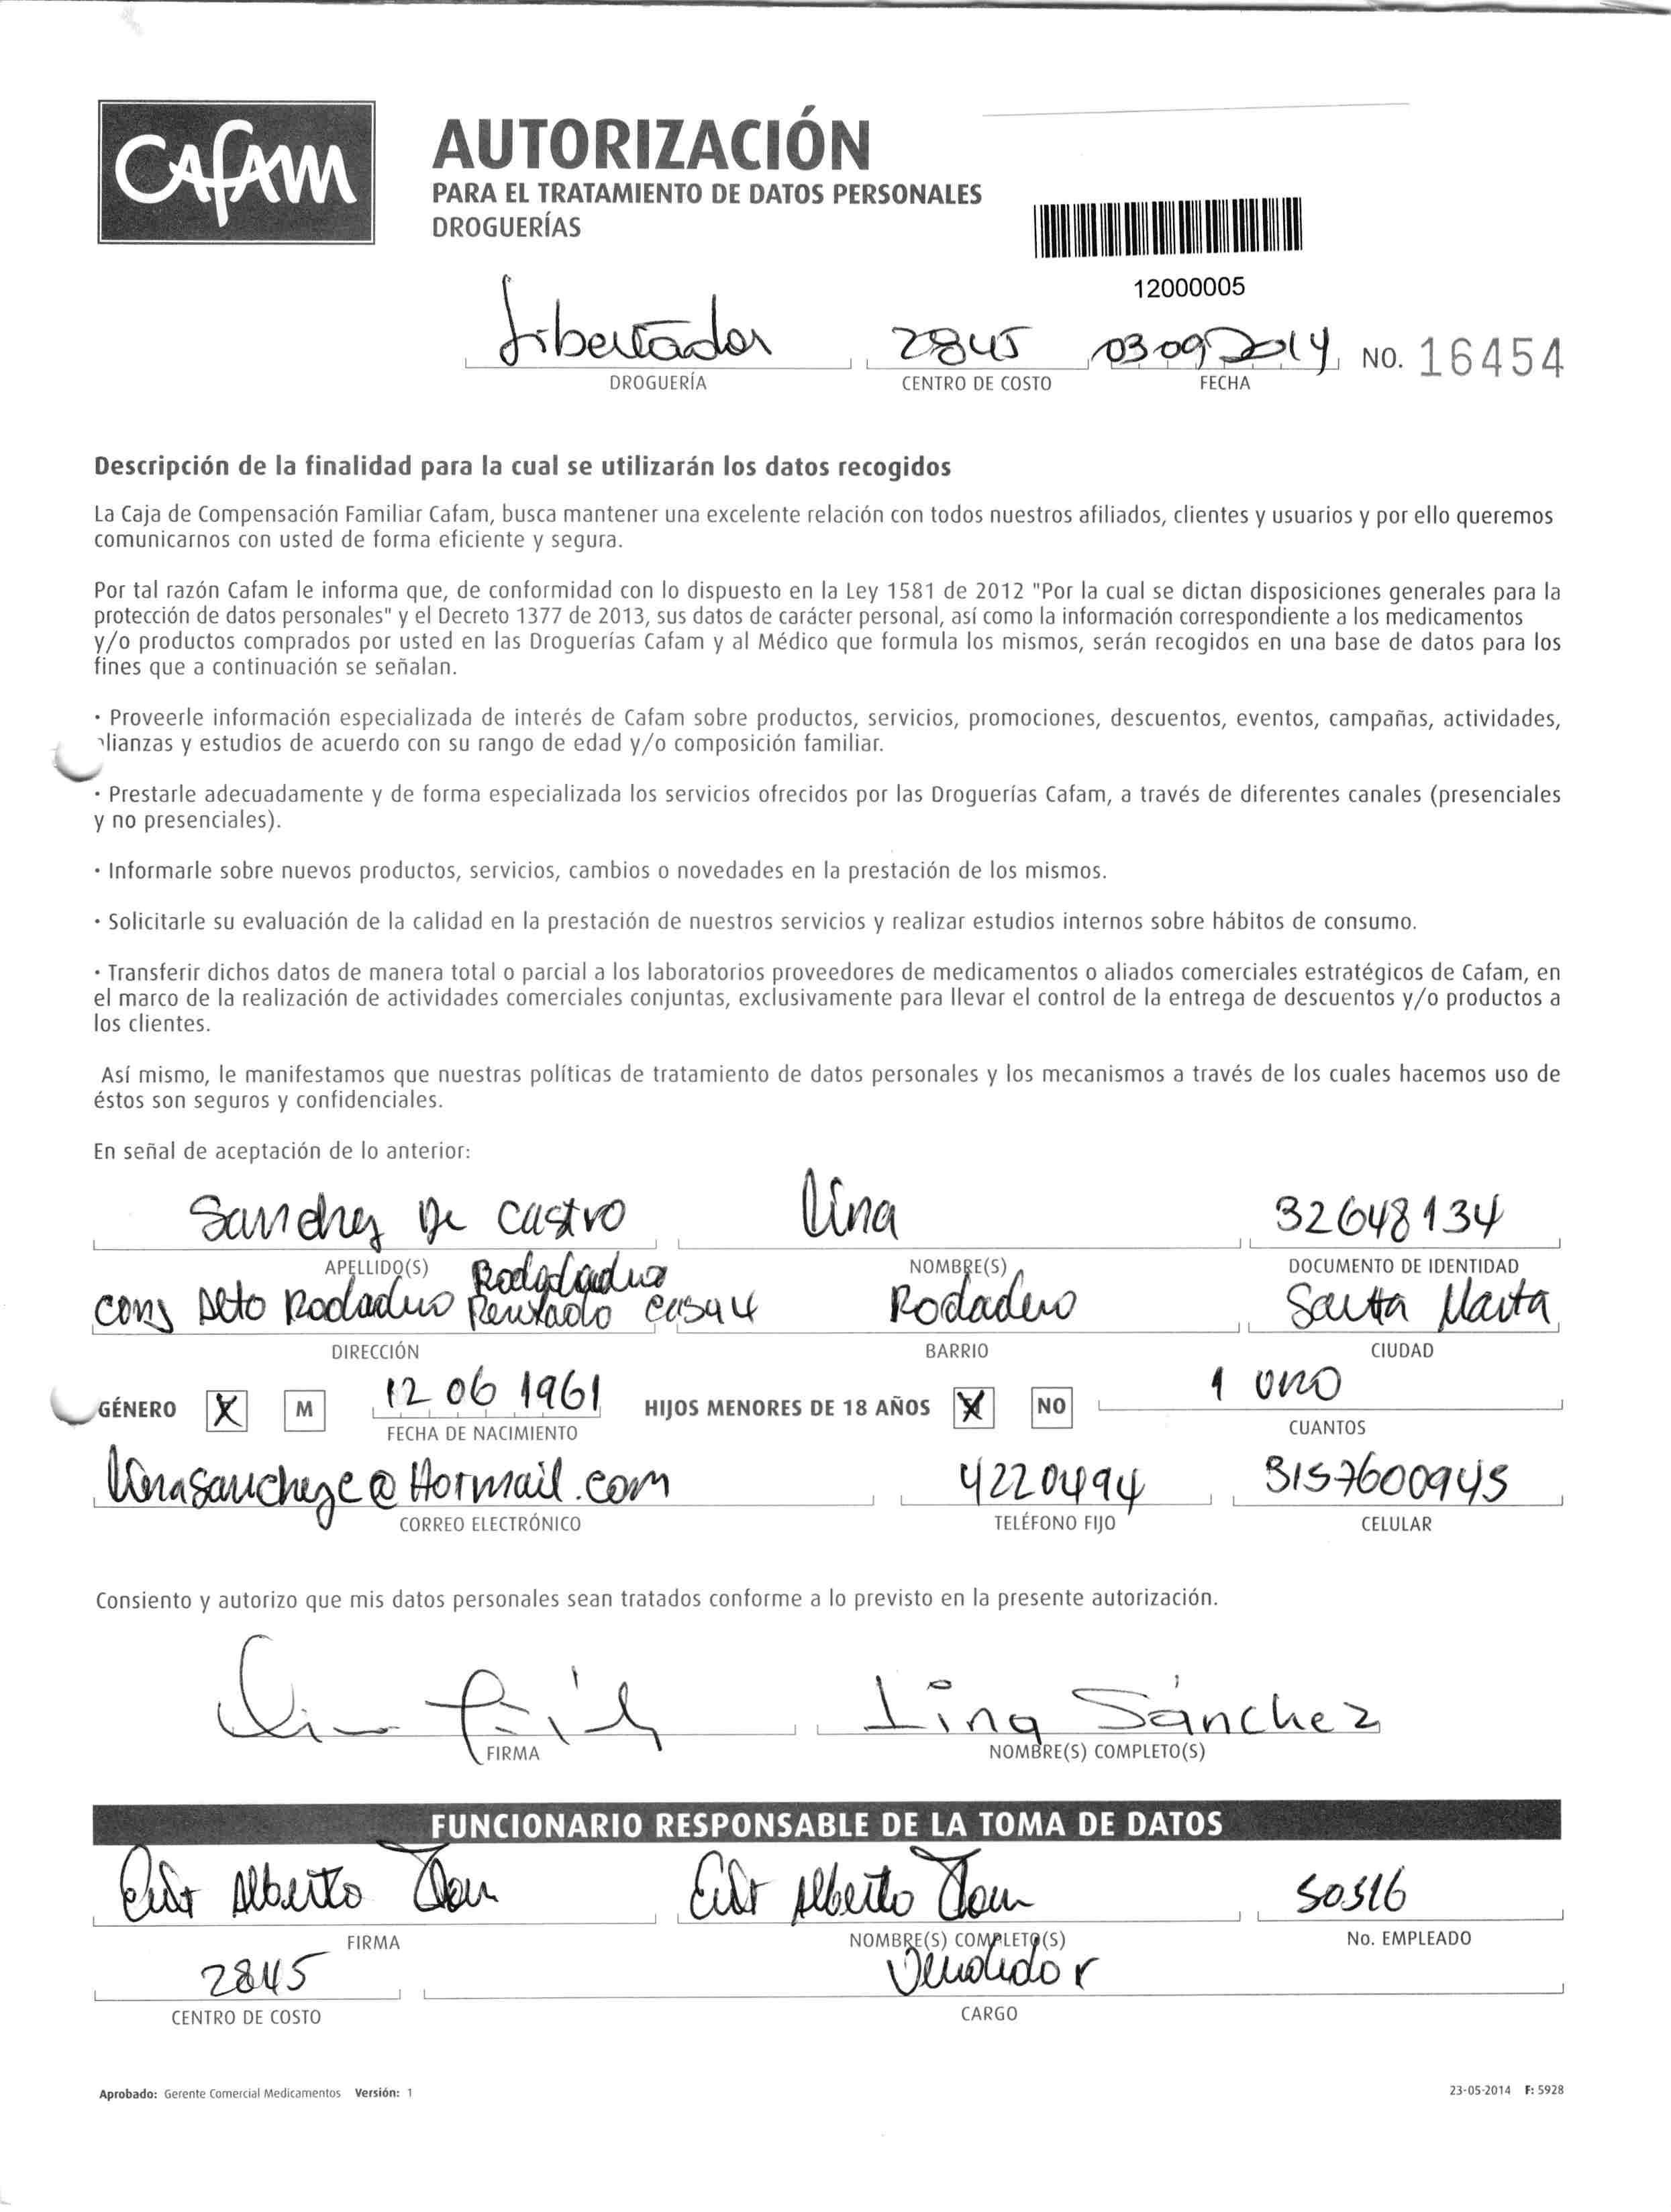 Cafam
AUTORIZACIÓN
PARA EL TRATAMIENTO DE DATOS PERSONALES
DROGUERÍAS
12000005
Libertador 2845 03 09 2014 NO. 16454
DROGUERÍA CENTRO DE COSTO FECHA
Descripción de la finalidad para la cual se utilizarán los datos recogidos
La Caja de Compensación Familiar Cafam, busca mantener una excelente relación con todos nuestros afiliados, clientes y usuarios y por ello queremos
comunicarnos con usted de forma eficiente y segura.
Por tal razón Cafam le informa que, de conformidad con lo dispuesto en la Ley 1581 de 2012 "Por la cual se dictan disposiciones generales para la
protección de datos personales" y el Decreto 1377 de 2013, sus datos de carácter personal, así como la información correspondiente a los medicamentos
y/o productos comprados por usted en las Droguerías Cafam y al Médico que formula los mismos, serán recogidos en una base de datos para los
fines que a continuación se señalan.
· Proveerle información especializada de interés de Cafam sobre productos, servicios, promociones, descuentos, eventos, campañas, actividades,
lianzas y estudios de acuerdo con su rango de edad y/o composición familiar.
· Prestarle adecuadamente y de forma especializada los servicios ofrecidos por las Droguerías Cafam, a través de diferentes canales (presenciales
y no presenciales).
· Informarle sobre nuevos productos, servicios, cambios o novedades en la prestación de los mismos.
· Solicitarle su evaluación de la calidad en la prestación de nuestros servicios y realizar estudios internos sobre hábitos de consumo.
· Transferir dichos datos de manera total o parcial a los laboratorios proveedores de medicamentos o aliados comerciales estratégicos de Cafam, en
el marco de la realización de actividades comerciales conjuntas, exclusivamente para llevar el control de la entrega de descuentos y/o productos a
los clientes.
Así mismo, le manifestamos que nuestras políticas de tratamiento de datos personales y los mecanismos a través de los cuales hacemos uso de
éstos son seguros y confidenciales.
En señal de aceptación de lo anterior:
Sanchez De Castro Lina 32648134
APELLIDO(S) NOMBRE(S) DOCUMENTO DE IDENTIDAD
Conj Alto Rodadero casa 4 Rodadero Santa Marta
DIRECCIÓN BARRIO CIUDAD
GÉNERO X M 12 06 1961 HIJOS MENORES DE 18 AÑOS X NO 1 uno
FECHA DE NACIMIENTO CUANTOS
linasanchezc@Hotmail.com 4220494 3157600945
CORREO ELECTRÓNICO TELÉFONO FIJO CELULAR
Consiento y autorizo que mis datos personales sean tratados conforme a lo previsto en la presente autorización.
Lina Sánchez
FIRMA NOMBRE(S) COMPLETO(S)
FUNCIONARIO RESPONSABLE DE LA TOMA DE DATOS
Alberto Alberto 50516
FIRMA NOMBRE(S) COMPLETO(S) No. EMPLEADO
2845 Vendedor
CENTRO DE COSTO CARGO
Aprobado: Gerente Comercial Medicamentos Versión: 1 23-05-2014 F: 5928